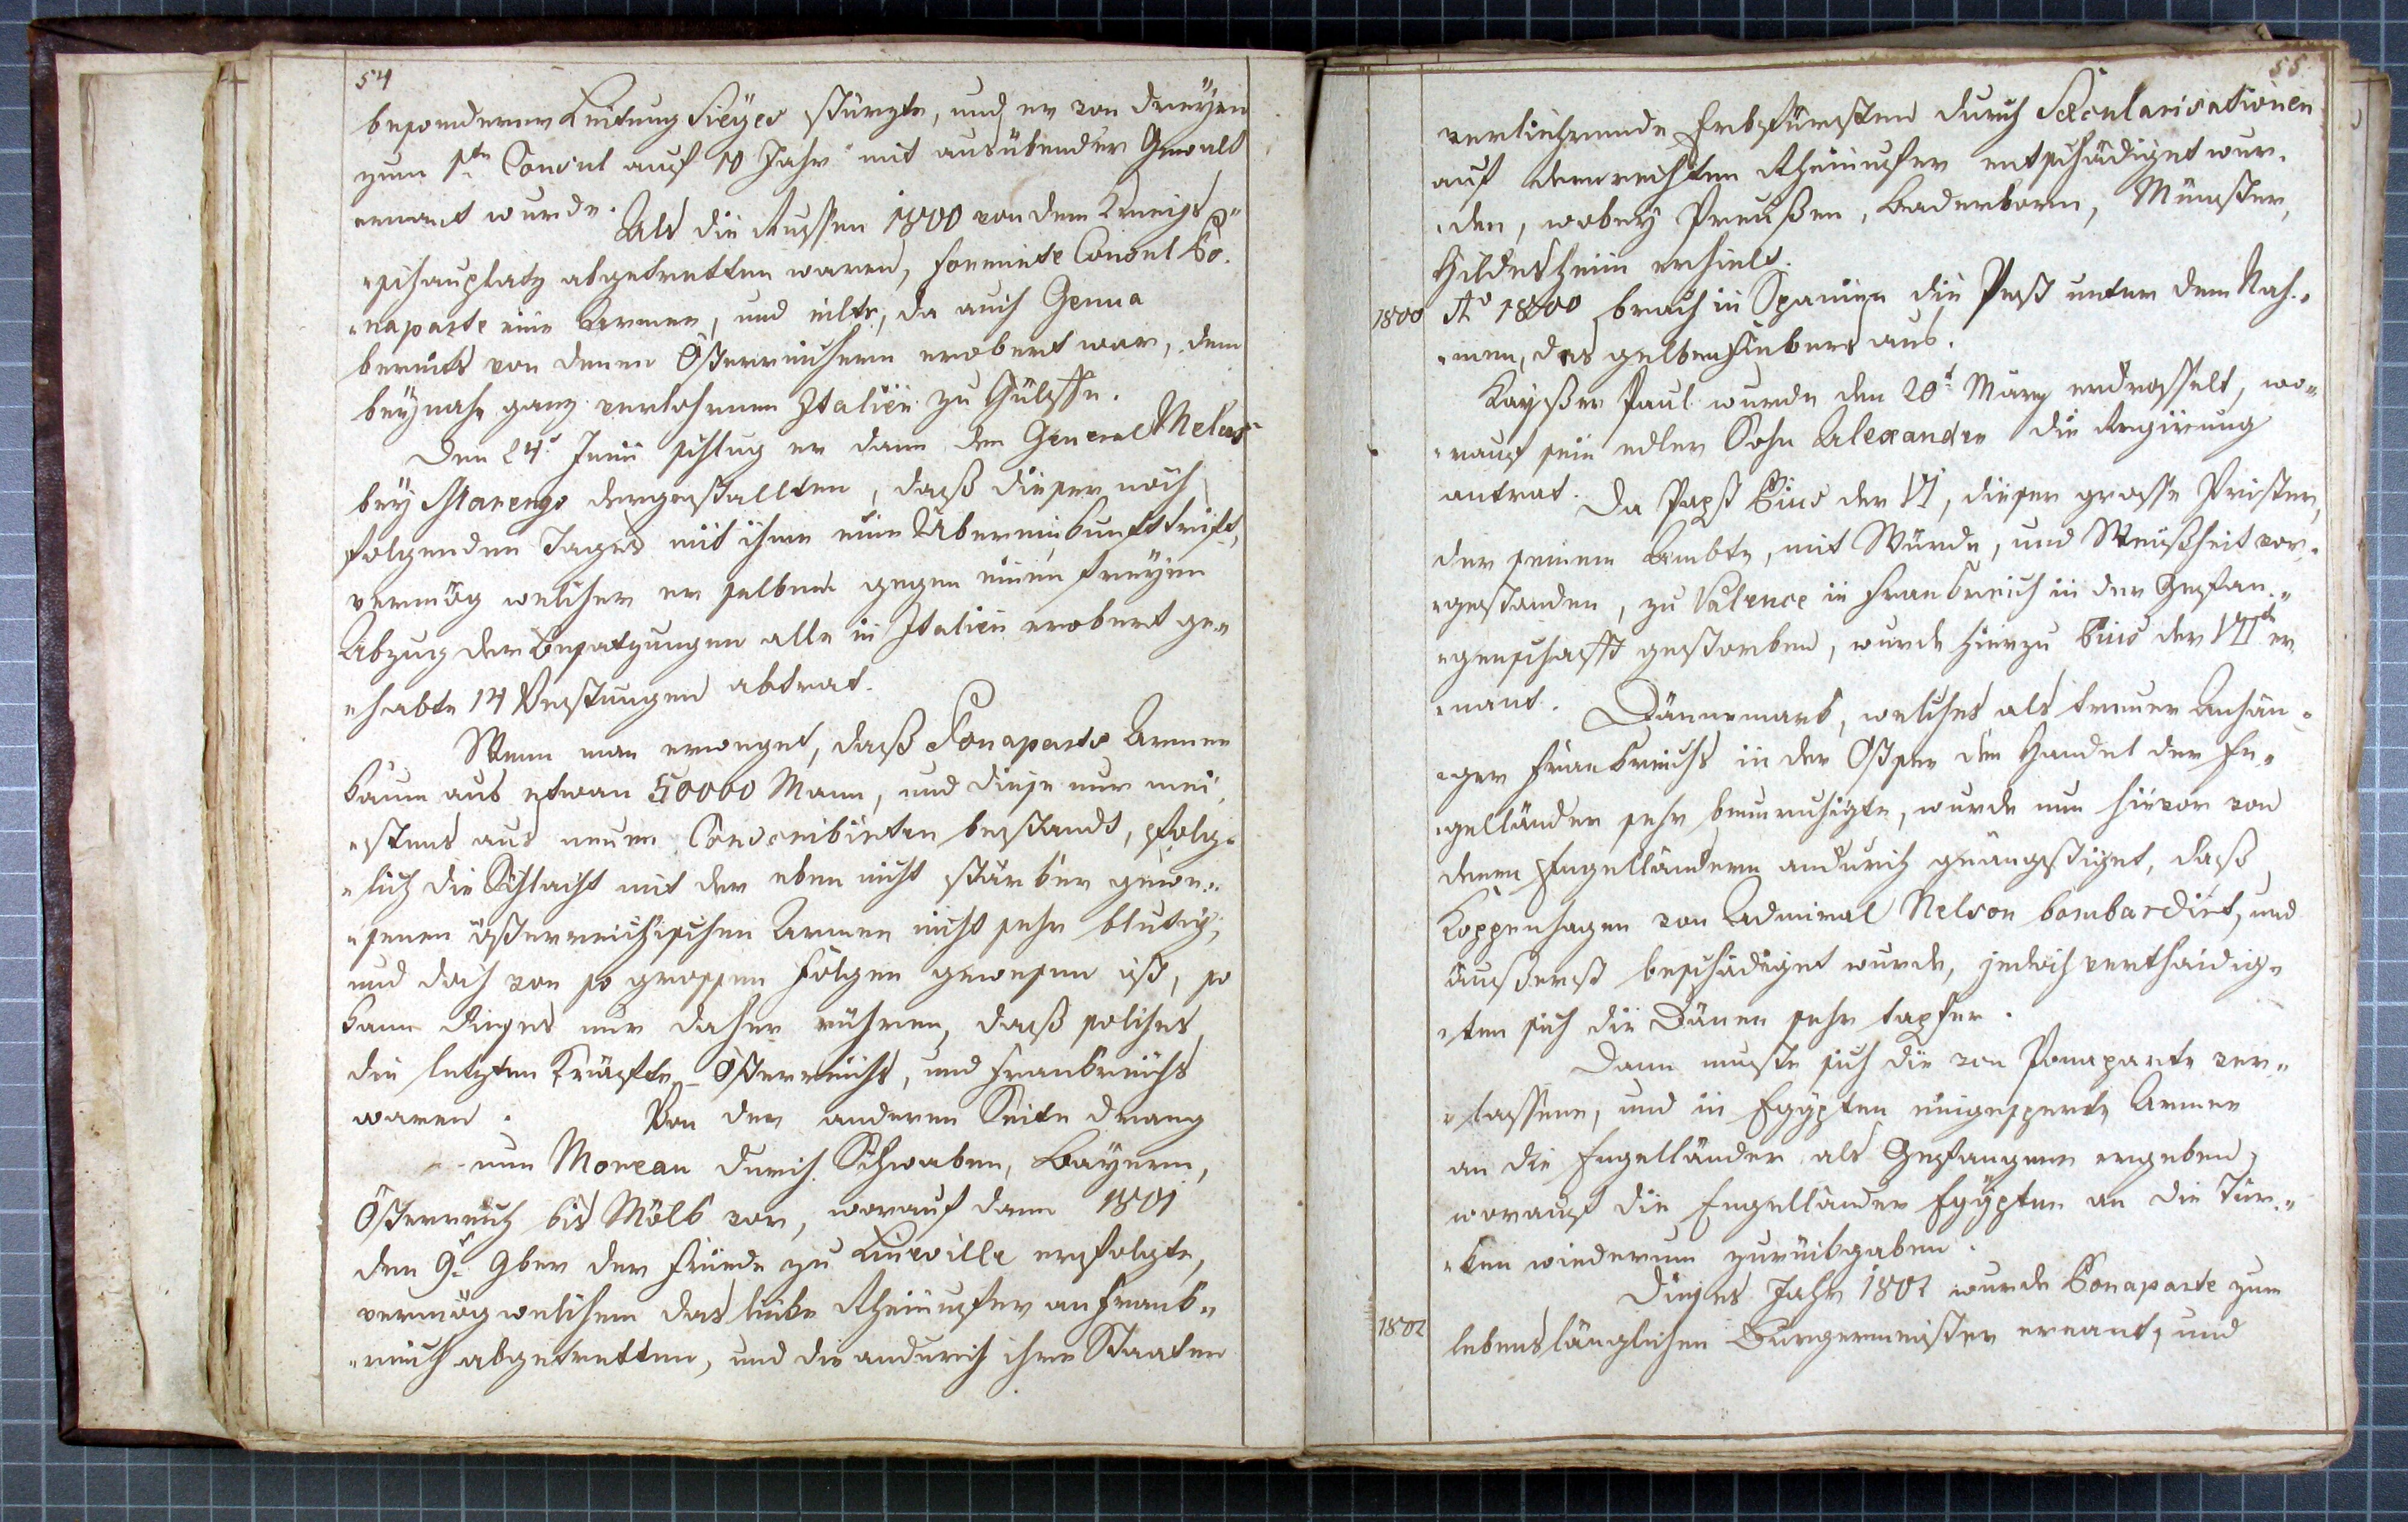 54
besonderer Leitung Sieÿes stürzte, und er von dreÿen
zum 1ten Consul auf 10 Jahr mit ausübender Gewalt
ernant wurde.
Als die Russen 1800 von dem Kriegs„
„schauplatz abgetretten waren, formirte Consul Bo„
„naparte eine Armee, und eilte, da auch Genua
bereits von denen Österreichern erobert war, dem
beÿnahe ganz verlohrnen Italien zu Hülffe.
Den 24t Junii schlug er dann den General Melas
beÿ Marengo dergestallten, daß dieser noch
folgenden Tages mit ihme eine Übereinkunft trift,
vermög welcher er selbem gegen einen freÿen
Abzug der Besatzungen alle in Italien erobert ge„
„habte 14 Vestungen abtrat.
Wenn man erweget, daß Bonaparts Armee
kaum aus etwan 50000 Mann, und diese nur mei„
„stens aus neuen Conscribirten bestandt, folg„
„lich die Schlacht mit der eben nicht stärker gewe„
„senen österreichischen Armee nicht sehr blutig,
und doch von so grossen Folgen gewesen ist, so
kann dieses nur daher rühren, daß solches
die letzten Kräfte Österreichs, und Frankreichs
waren. Von der anderen Seite drang
nun Moreau durch Schwaben, Bayern,
Österreich bis Mölk vor, worauf dann 1801
den 9t 9ber der Friede zu Lineville erfolgte,
vermög welchem das linke Rheinufer an Frank„
„reich abgetretten, und die andurch ihre Staaten
55
verliehrende Erbfürsten durch Säcularisationen
auf dem rechten Rheinufer entschädiget wur„
„den, wobeÿ Preußen, Baderborn, Münster,
Hildesheim erhielt.
1800 Ao 1800 brach in Spanien die Pest unter dem Nah„
„men, des gelben Fiebers aus.
Kaÿßer Paul wurde den 20t März erdrosselt, wo„
„rauf sein edler Sohn Alexander die Regirung
antrat. Da Papst Pius der VI, dieser grosse Prister,
der seinem Ambte, mit Würde, und Weißheit vor„
„gestanden, zu Valence in Frankreich in der Gefan„
„genschafft gestorben, wurde hierzu Pius der VIIte er„
„nant. Dännemark, welches als treuer Anhän„
„ger Frankreichs in der Ostsee den Handel der En„
„gelländer sehr beunruhigte, wurde nun hievor von
denen Engelländern andurch geängstiget, daß
Koppenhagen von Admiral Nelson bombardirt, und
äußerst beschädiget wurde, jedoch verthaidig„
„ten sich die Dänen sehr tapfer.
Dann muste sich die von Ponaparte ver„
„lassene, und in Egÿpten eingesperte Armee
an die Engelländer als Gefangene ergeben,
worauf die Engelländer Egÿpten an die Tür„
„ken wiederum zurückgaben.
Dieses Jahr 1802 wurde Bonaparte zum
1802 lebenslänglichen Burgermeister ernant, und